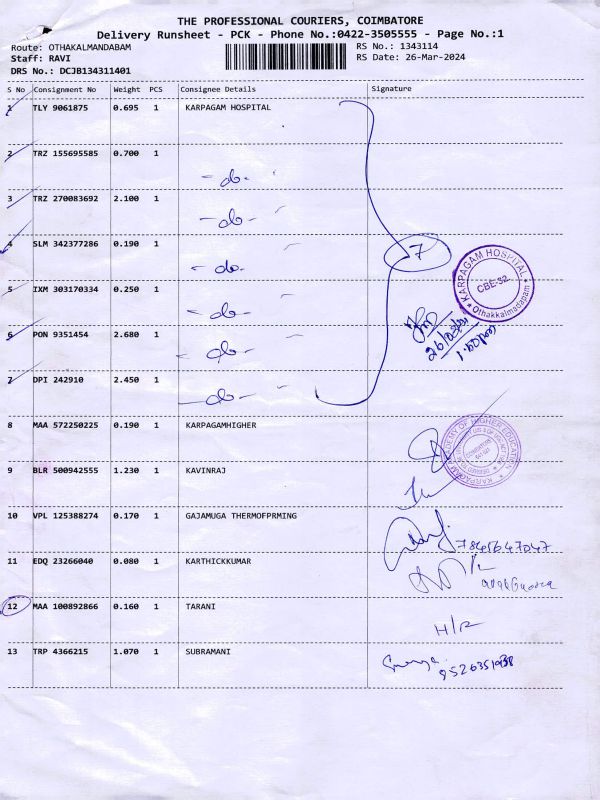 THE PROFESSIONAL COURIERS, COIMBATORE
Delivery Runsheet - PCK - Phone No.:0422-3505555 - Page No.:1
Route: OTHAKALMANDABAM
RS No.: 1343114
Staff: RAVI
RS Date: 26-Mar-2024
DRS No.: DCJB134311401
S No Consignment No Weight PCS Consignee Details Signature
1 TLY 9061875 0.695 1 KARPAGAM HOSPITAL
2 TRZ 155695585 0.700 1
-do-
3 TRZ 270083692 2.100 1
-do-
4 SLM 342377286 0.190 1
7
KARPAGAM HOSPITAL
CBE-32.
Othakkalmadapam
-do-
5 IXM 303170334 0.250 1
-do-
26/03/
1.50pm
6 PON 9351454 2.680 1
-do-
7 DPI 242910 2.450 1
-do-
8 MAA 572250225 0.190 1 KARPAGAMHIGHER
KARPAGAM ACADEMY OF HIGHER EDUCATION
9 BLR 500942555 1.230 1 KAVINRAJ
10 VPL 125388274 0.170 1 GAJAMUGA THERMOFPRMING
7845647047
11 EDQ 23266040 0.080 1 KARTHICKKUMAR
12 MAA 100892866 0.160 1 TARANI
H/R
13 TRP 4366215 1.070 1 SUBRAMANI